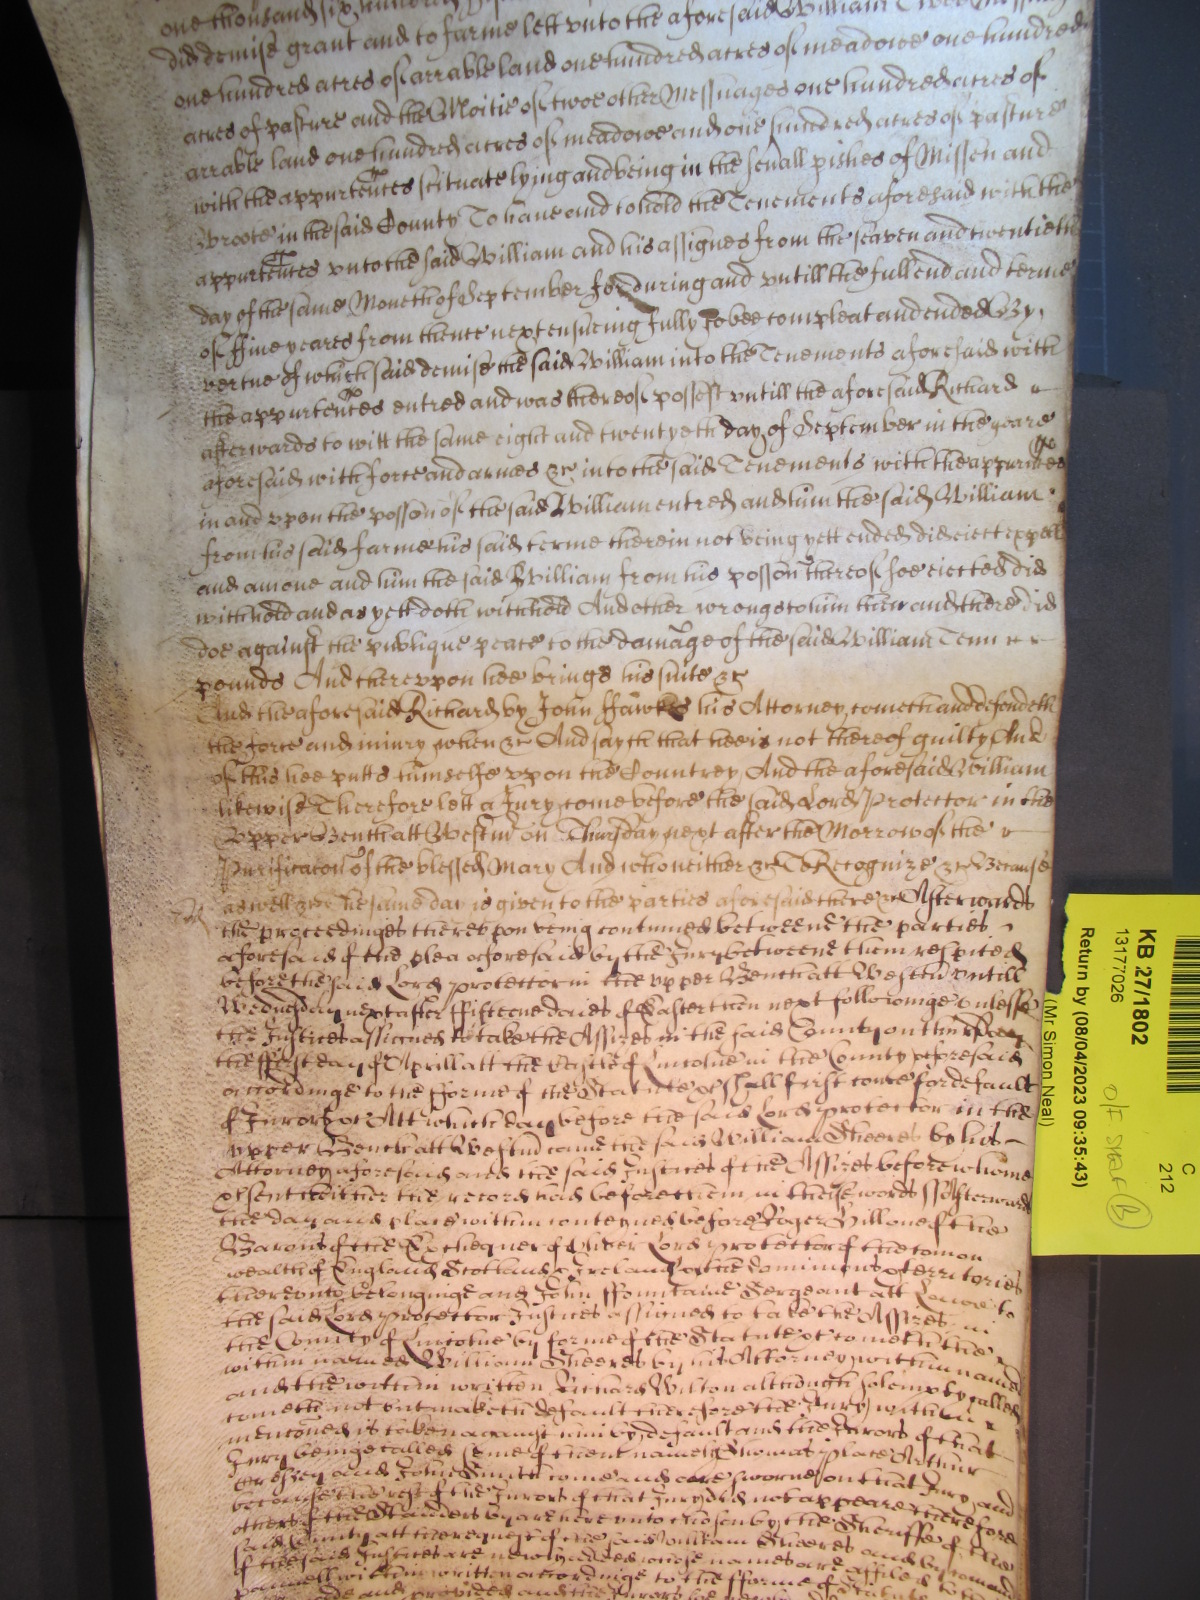 one thousand six hundred
did demise grant and to farme lett vnto the aforesaid William Twoe Messuages
one hundred acres of arrable land one hundred acres of meadowe one hundred
acres of pasture and the Moitie of twoe other Messuages one hundred acres of
arrable land one hundred acres of meadowe and one hundred acres of pasture
with the appurtences scituate lying and being in the seuall pishes of Missen and
Wroote in the said County To haue and to hold the Tenements aforesaid with the
appurtences vnto the said William and his assignes from the seaven and twentieth
day of the same Moneth of September for during and vntill the full end and terme
of ffiue yeares from thence next ensueing fully to bee compleat and ended By
vertue of which said demise the said William into the Tenements aforesaid with
the appurtences entred and was thereof possest vntill the aforesaid Richard
afterwards to witt the same eight and twentyeth day of September in the yeare
aforesaid with force and armes &c into the said Tenements with the appurtces
in and vpon the posson of the said William entred and him the said William
from his said farme his said terme therein not being yett ended did eiect expell
and amove and him the said William from his posson thereof soe eiected did
withhold and as yett doth withhold And other wrongs to him then and there did
doe against the publique peace to the damage of the said William Tenn
pounds And therevpon hee brings his suite &c
And the aforesaid Richard by John ffawkes his Attorney cometh and defendeth
the force and iniury when &c And sayth that hee is not thereof guilty And
of this hee putts himselfe vpon the Countrey And the aforesaid William
likewise Therefore lett a Jury come before the said Lord Protector in the
Vpper Bench att Westm on Thursday next after the Morrow of the
Purificacon of the blessed Mary And who neither &c To Recognize &c Because
aswell &c The same day is given to the parties aforesaid there &c Afterwards
the proceedinges therevpon being contynued betweene the parties
aforesaid of the plea aforesaid by the Jury betweene them respited
before the said Lord protector in the vpper Bench att Westm vntill
Wednesday next after ffifteene daies of Easter then next followinge vnlesse
the Justices assigned to take the Assizes in the said County on
the ffirst day of Aprill att the Castle of Lincolne in the County aforesaid
accordinge to the fforme of the Statute &c shall first come for default
of Jurors &c Att which day before the said Lord protector in the
vpper Bench att Westm came the said William Sheeres by his
Attorney aforesaid and the said Justices of the Assizes before whome
&c sent hither the record had before them in theise words ss Afterwards
the day and place within conteyned before Roger Hill one of the
Barons of the Exchequer of Oliver Lord protector of the comon
wealth of England Scotland & Ireland & the dominions & territories
therevnto belonginge and John ffountaine Sergeant att Lawe to
the said Lord protector Justices assigned to take the Assizes in
the County of Lincolne by forme of the Statute &c cometh the
within named William Sheeres by his Attorney within named
and the within written Richard Wilton although solempnly called
cometh not but maketh default therefore the Jury within
menconed is taken against him by default and the Jurors of that
Jury beinge called some of them namely Thomas place Arthur
and John Smith come and are sworne on that Jury and
because the rest of the Jurors of that Jury did not appeare therefore
others of the Standers by are herevnto chosen by the Sheriffe of the
said County att the request of the said William Sheeres and by comand
of the said Justices are newly added whose names are affiled to the
pannell within written accordinge to the fforme of the Statute
made and provided and the Jurors
KB 27/1802
13177026
Return by (08/04/2023 09:35:43)
(Mr Simon Neal)
C
212
B